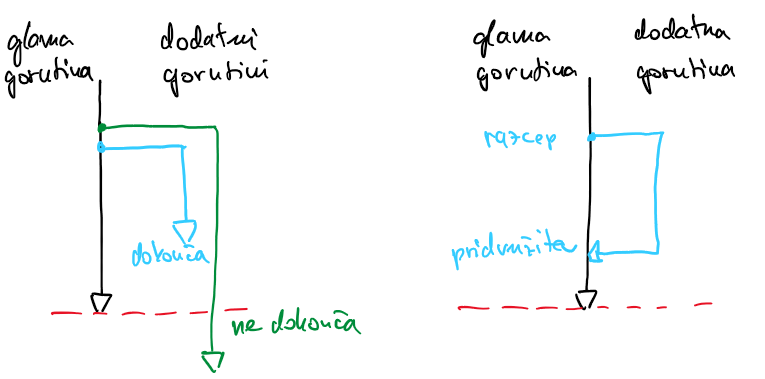 glavna
gorutina
dodatni
gorutini
dokonča
ne dokonča
glavna
gorutina
dodatna
gorutina
razcep
pridružitev